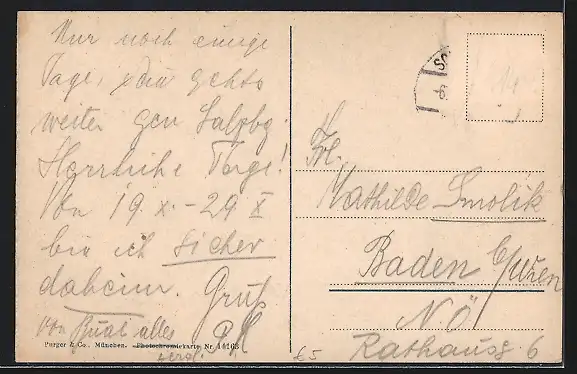 Nur noch einige
Tage, dann gehts
weiter gen Salzbg.
Herrliche Tage!
Von 19. X. - 29 X
bin ich sicher
daheim. Gruß
von alles
Purger & Co., München. Photochromiekarte Nr. 14163
Frl.
Mathilde Smolik
Baden b/Wien
NÖ
Rathausg 6
£5